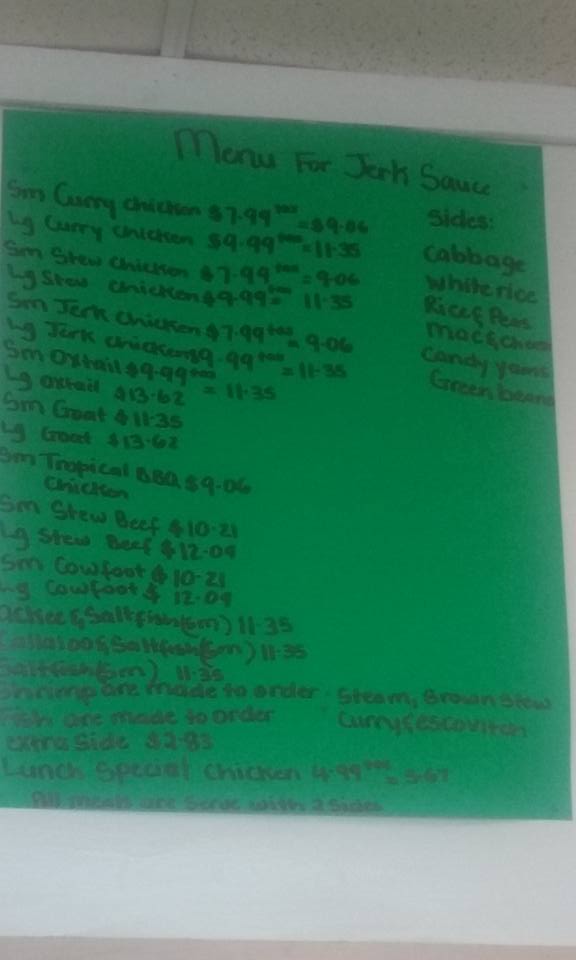 Menu For Jerk Sauce
Sm Curry chicken $7.99 tax = $9.06
Lg Curry Chicken $9.99 tax = 11.35
Sm Stew Chicken $7.99 tax = 9.06
Lg Stew Chicken $9.99 tax = 11.35
Sm Jerk Chicken $7.99 tax = 9.06
Lg Jerk Chicken $9.99 tax = 11.35
Sm Oxtail $9.99 tax = 11.35
Lg oxtail $13.62
Sm Goat $11.35
Lg Goat $13.62
Sm Tropical BBQ $9.06
Chicken
Sm Stew Beef $10.21
Lg Stew Beef $12.09
Sm Cowfoot $10.21
Lg Cowfoot $12.09
Ackee & Saltfish (Sm) 11.35
Callaloo & Saltfish (Sm) 11.35
Saltfish (Sm) 11.35
Shrimp are made to order
Fish are made to order
extra Side $2.83
Lunch Special Chicken 4.99 tax = 5.67
All meals are Serve with 2 Sides
Sides:
Cabbage
White rice
Rice & Peas
Mac & Cheese
Candy yams
Green beans
Steam, Brown Stew
Curry, & escovitch